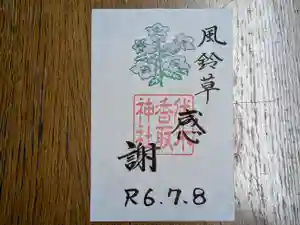 風鈴草
感謝
伏木
香取
神社
R6.7.8